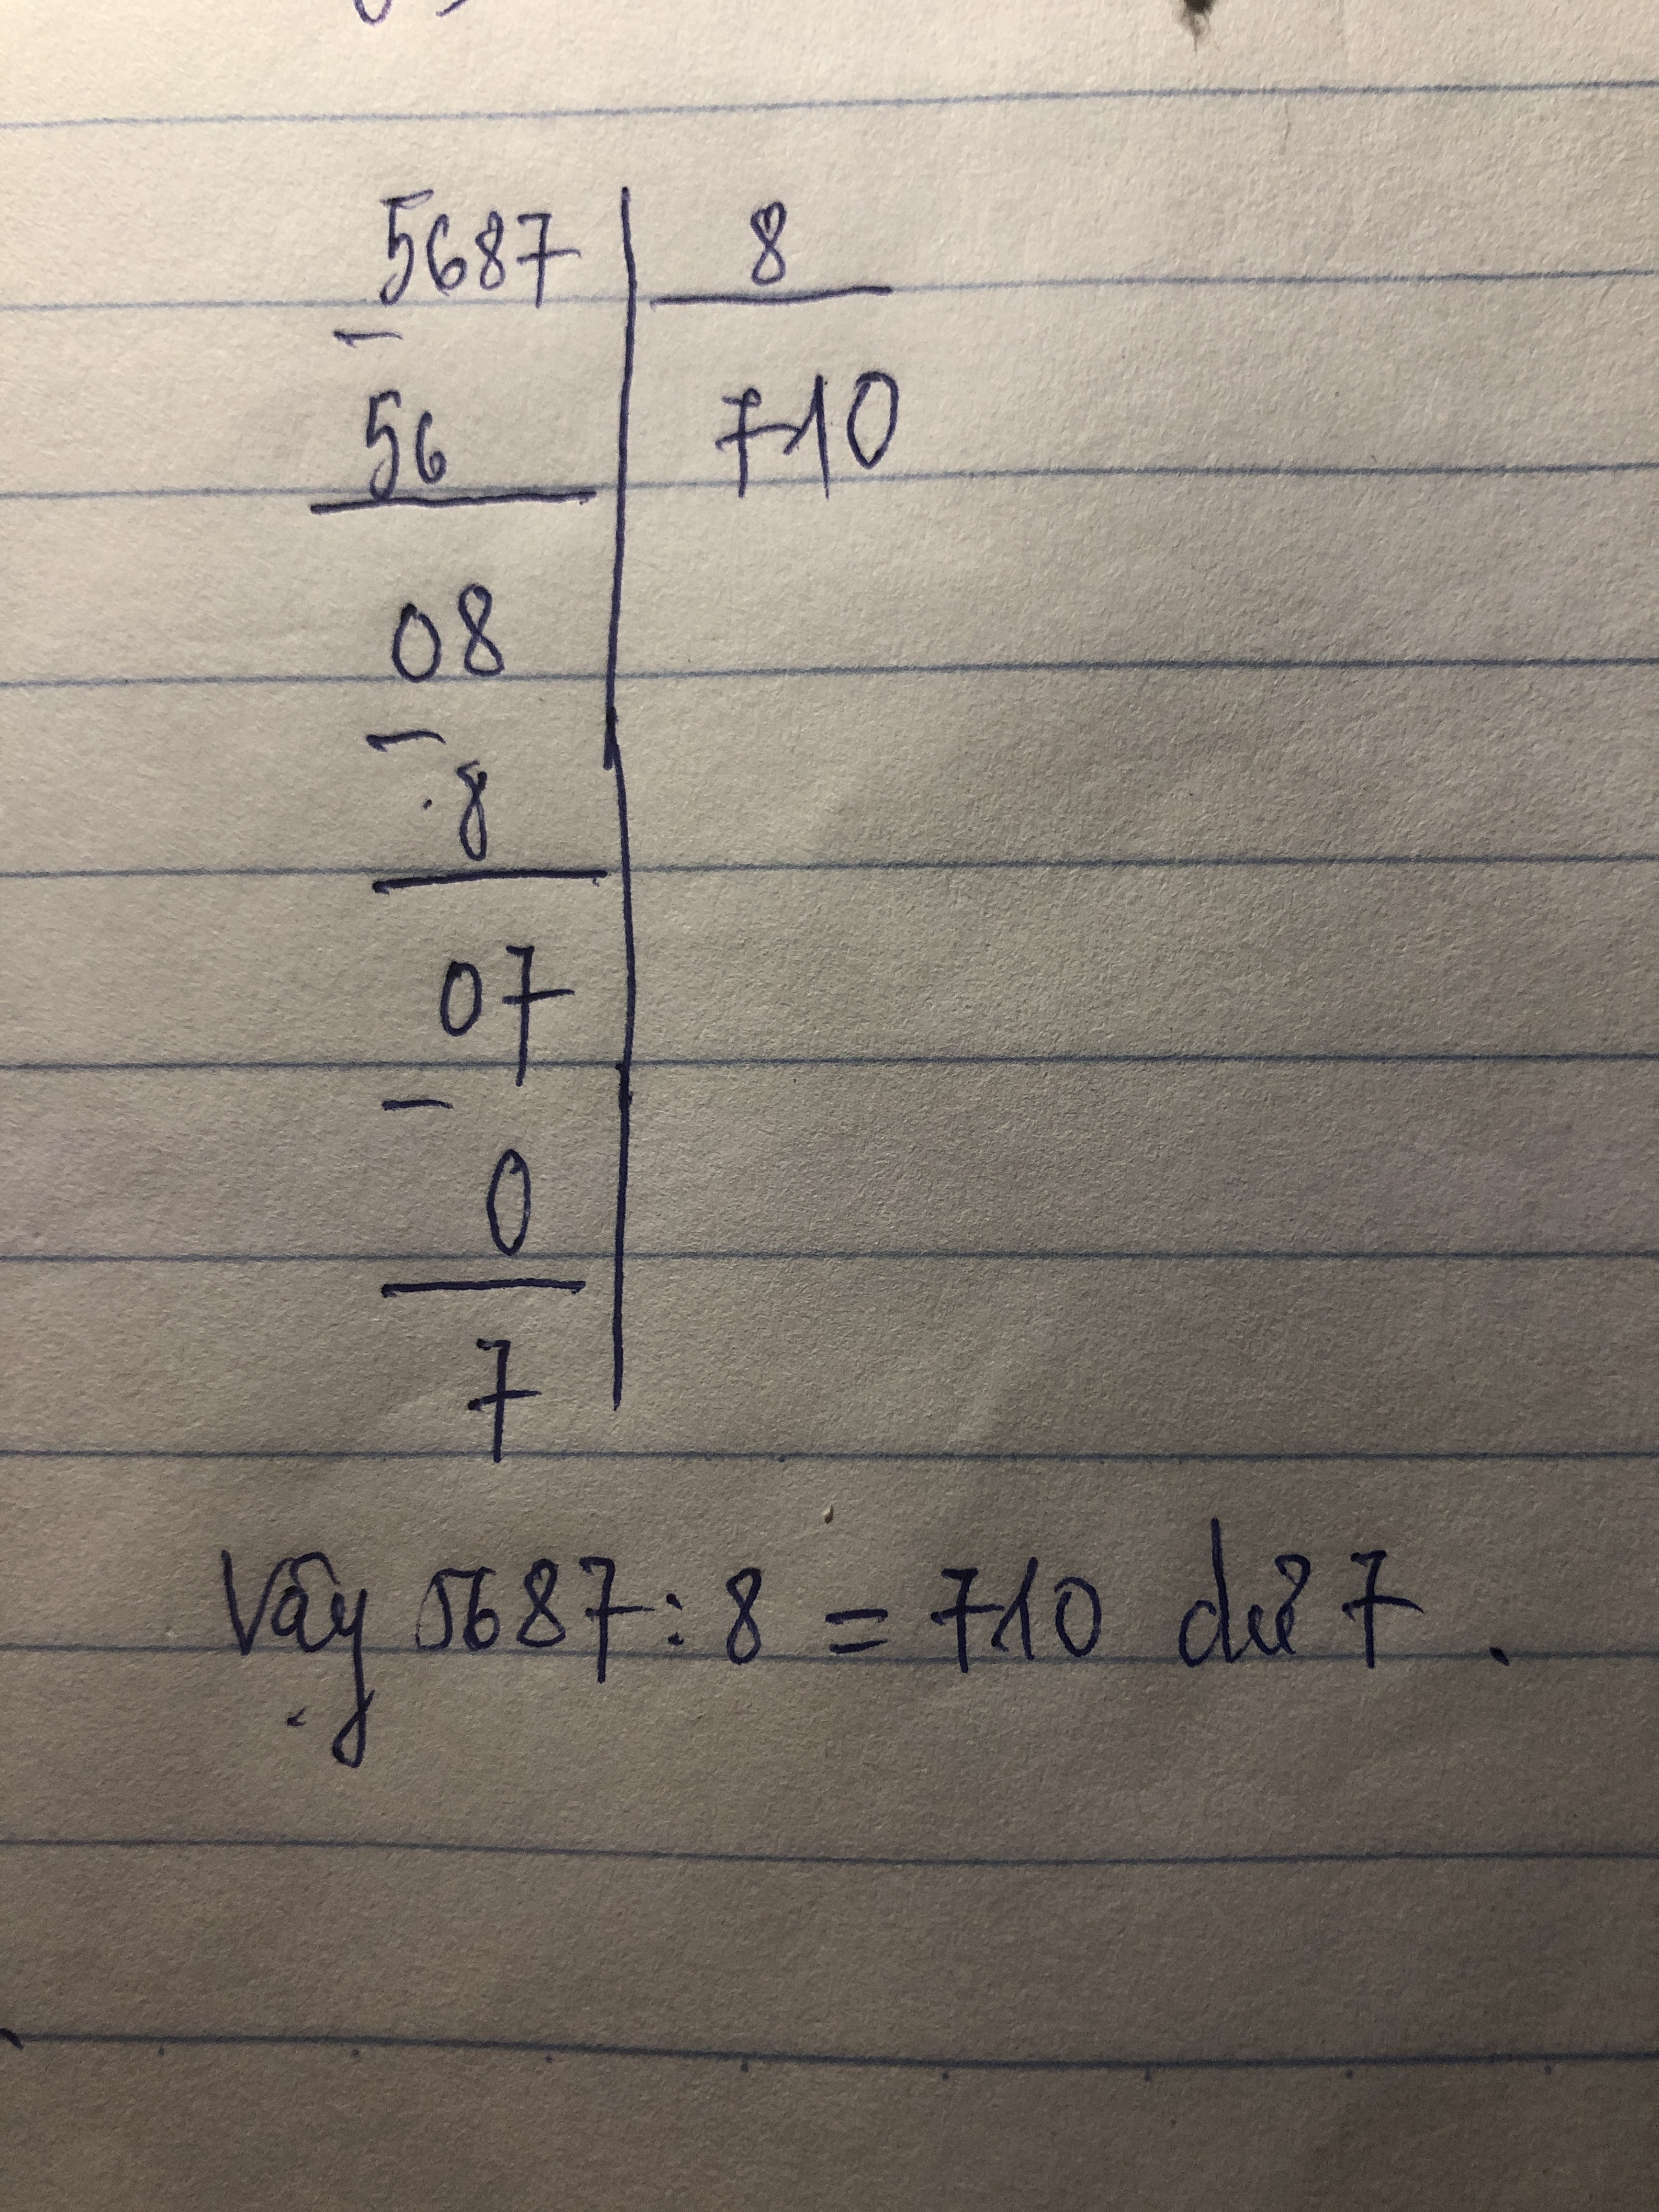 5687 8
- 56 710
08
- 8
07
- 0
7
Vậy 5687 : 8 = 710 dư 7 .